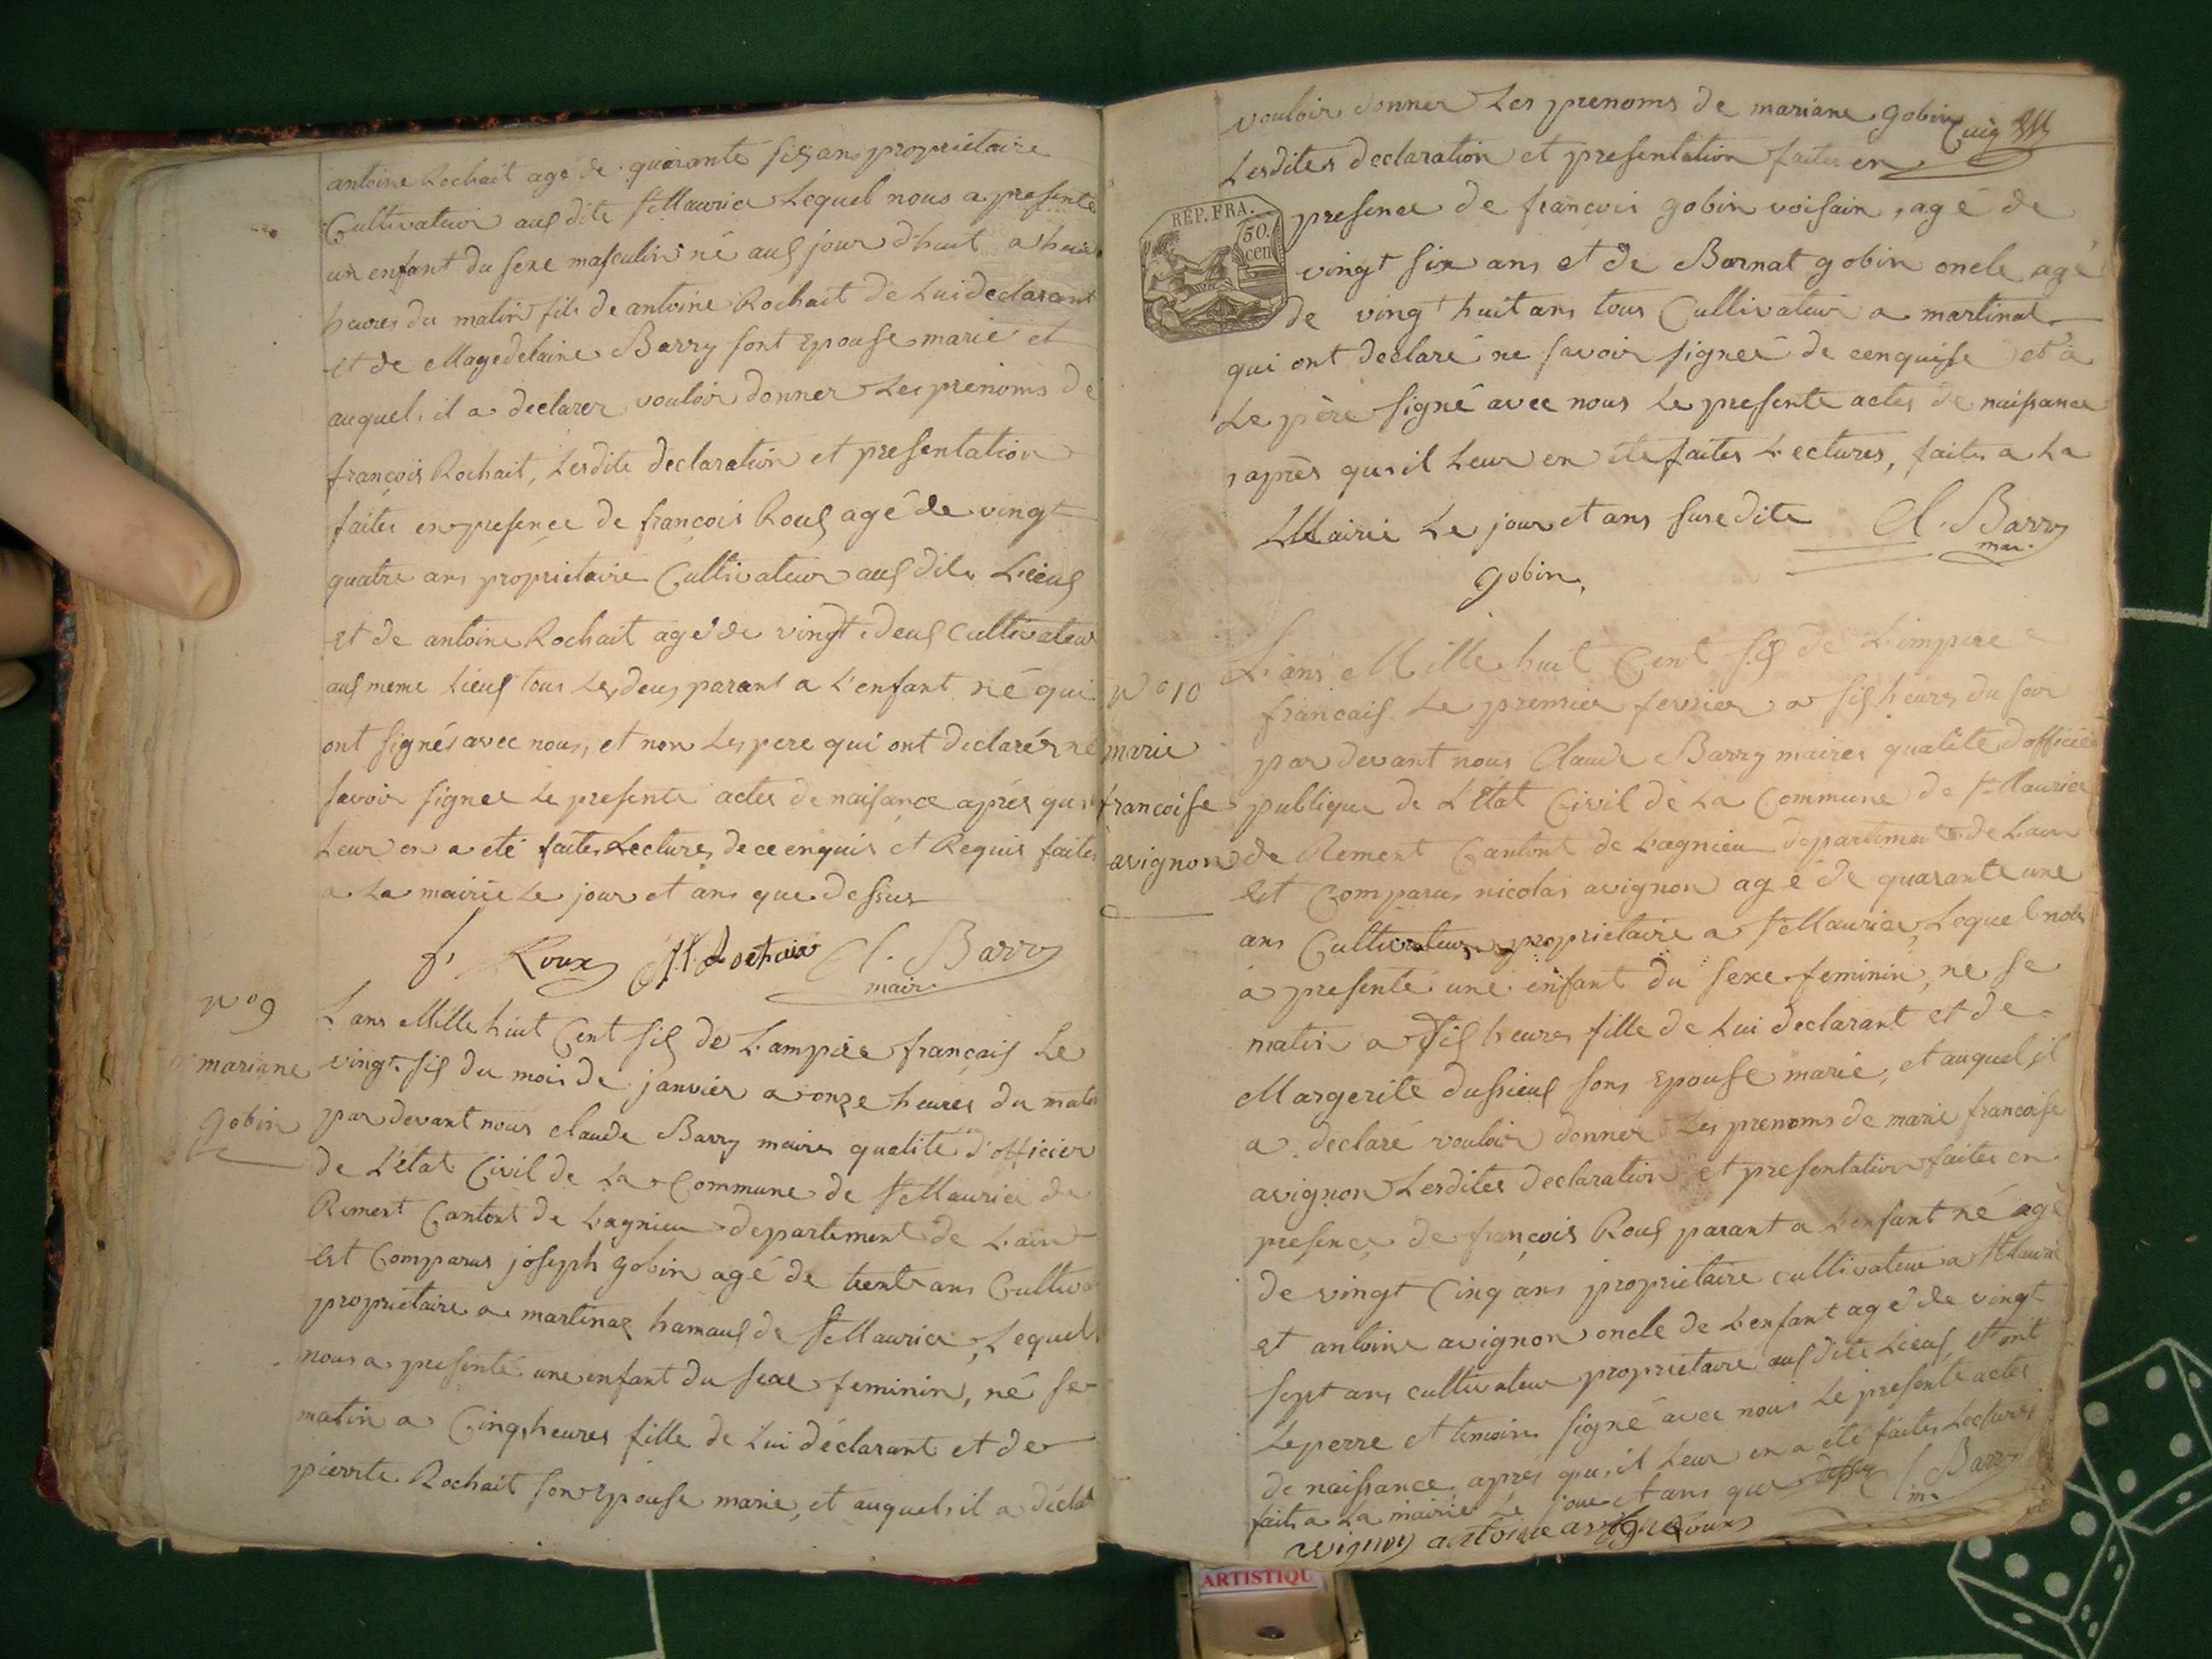 antoine Rochait agé de quarante sis ans propriétaire
Cultivateur aus dite St Maurice Lequel nous a presente
un enfant du sexe masculin né aus jour d'huit a huit
heures du matin fils de antoine Rochait de Lui declarant
et de Magedelaine Barry sont Epouse marié et
auquel il a declarer vouloir donner Les prenoms de
françois Rochait, Lesdite declaration et presentation
faites en presence de francois Rous agé de vingt
quatre ans propriétaire Cultivateur aus dite Lieus
et de antoine Rochait agé de vingt deus Cultivateur
aus meme Lieus tous Les deus parant a L'enfant né qui
ont signés avec nous, et non Les pere qui ont declarés ne
savoir signer Le presente actes de naisance aprés qu'il
Leur en a eté faites Lectures de ce enquis et Requis faites
a La mairie Le jour et ans que dessus
f. Roux Rochait Cl. Barry
maire
N° 9
mariane
gobin
L'ans Mille huit Cent sis de L'ampire français Le
vingt sis du mois de janvier a onze heures du matin
par devant nous claude Barry maires qualité d'officier
de L'état Civil de La Commune de St Maurice de
Rement Cantont de Lagnieu departement de L'ain
Est Comparus joseph gobin agé de trente ans Cultiva
propriétaire a martinaz hamaus de St Maurice, Lequel
nous a presenté une enfant du sexe feminin, né se
matin a Cinq heures fille de Lui déclarant et de
pierrite Rochait son Epouse marie, et auquel il a déclaré
vouloir donner Les prenoms de mariane gobin
Lesdites declaration et presentation faites en
RÉP. FRA.
50.
cen
presence de françois gobin voisain, agé de
vingt six ans et de Bernat gobin oncle agé
de vingt huit ans tous Cultivateur a martinas
qui ont declaré ne savoir signeé de cenquise et a
Le père signé avec nous Le presente actes de naissance
après qu'il Leur en ete faites Lectures, faites a La
Mairie Le jour et ans susedite Cl. Barry
mai.
gobin
N° 10
marie
francoise
avignon
L'ans Mille huit Cent sis de L'impire
français Le premier fevrier a sis heures du soir
par devant nous Claude Barry maires qualité d'officier
publique de L'État Civil de La Commune de St Maurice
de Rement Cantont de Lagnieu departement de L'ain
Est Comparus nicolas avignon agé de quarante une
ans Cultivateur propriétaire a St Maurice, Lequel nous
a presenté une enfant du sexe feminin, ne se
matin a sis heures fille de Lui declarant et de
Margerite dussieus sons Epouse marié, et auquel il
a declaré vouloir donner Les prenoms de marie francoise
avignon Lesdites declaration et presentation faites en
presence de françois Rous parant a L'enfant né agé
de vingt Cinq ans propriétaire cultivateur a St Maurice
et antoine avignon oncle de L'enfant agé de vingt
sept ans cultivateur propriétaire aus dite Lieus, et ont
Le perre et temoins signé avec nous Le presente actes
de naissance aprés qu'il Leur en a eté faites Lectures
fait a La mairie Le jour et ans que dessus Cl. Barry
m.
avignon antoine avignon Roux
ARTISTIQU